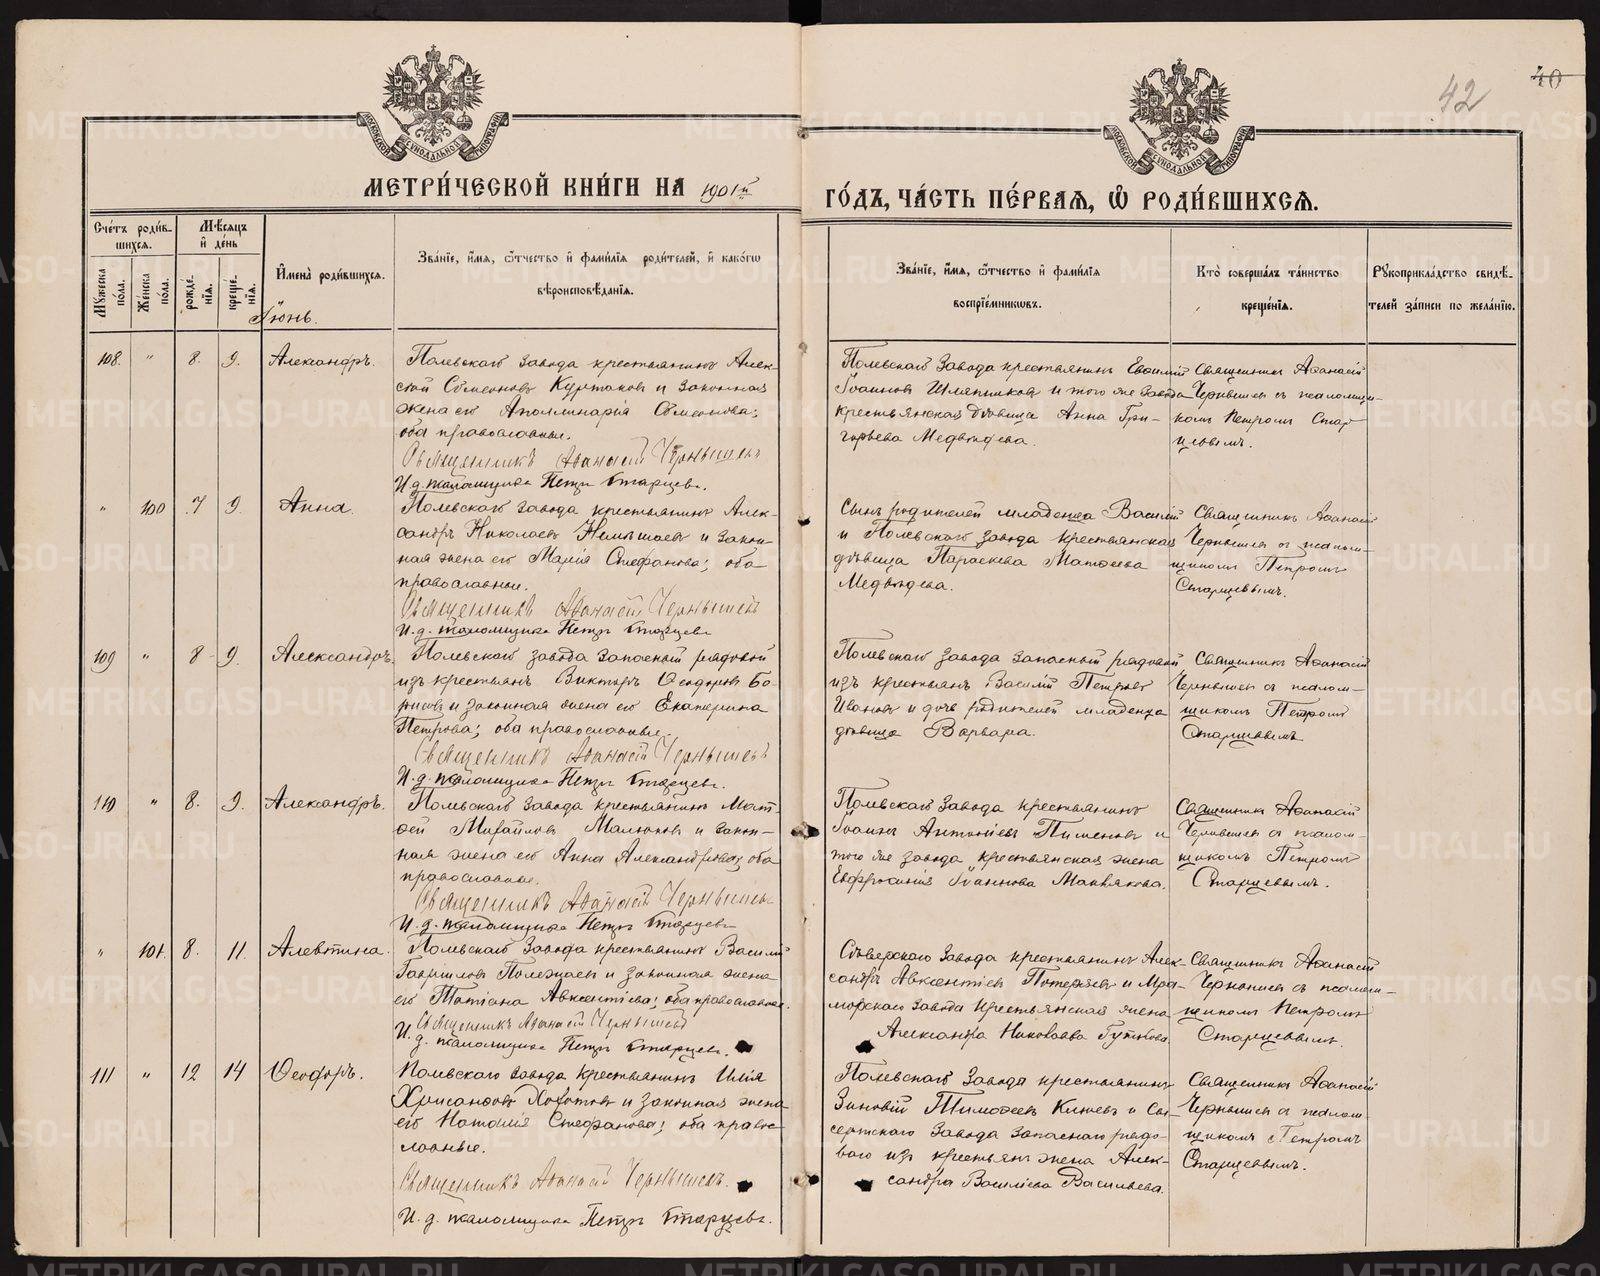 42
40
МОСКОВСКОЙ СѴНОДАЛЬНОЙ ТИПОГРАФІИ
МОСКОВСКОЙ СѴНОДАЛЬНОЙ ТИПОГРАФІИ
МЕТРИ́ЧЕСКОЙ КНИ́ГИ НА 1901й
ГО́ДЪ, ЧА́СТЬ ПЕ́РВАЯ, Ѽ РОДИ́ВШИХСЯ.
Сче́тъ роди́в-
шихся.
Мꙋжеска по́ла.
Же́нска по́ла.
Мѣ́сяцъ
и̑ де́нь
рожде́-
нїя.
креще́-
нїя.
И̑мена̀ роди́вшихся.
Зва́нїе, и́мя, ѻ́тчество и̑ фами́лїя роди́телей, и̑ како́гѡ
вѣроисповѣ́данїя.
Зва́нїе, и́мя, ѻ́тчество и̑ фами́лїя
воспрїе́мникѡвъ.
Кто̀ соверша́лъ та́инство
креще́нїя.
Рꙋкоприкла́дство свидѣ́-
телей за́писи по жела́нїю.
Іюнь.
108. " 8. 9. Александръ.
Полевскаго завода крестьянинъ Алек-
сей Симеоновъ Куртаковъ и законная
жена его Аполлинарія Симеонова;
оба православные.
Священникъ Аѳанасій Чернышевъ
И. д. псаломщика Петръ Старцевъ.
Полевскаго завода крестьянинъ Евсимій
Іоанновъ Шляпниковъ и того же завода
крестьянская дѣвица Анна Гри-
горьева Медвѣдева.
Священникъ Аѳанасій
Чернышевъ съ псаломщи-
комъ Петромъ Стар-
цевымъ.
" 100 7 9. Анна.
Полевскаго завода крестьянинъ Алек-
сандръ Николаевъ Немытаевъ и закон-
ная жена его Марія Стефанова; оба
православные.
Священникъ Аѳанасій Чернышевъ
И. д. псаломщика Петръ Старцевъ
Сынъ родителей младенца Василій
и Полевскаго завода крестьянская
дѣвица Параскева Матѳеева
Медвѣдева.
Священникъ Аѳанасій
Чернышевъ съ псалом-
щикомъ Петромъ
Старцевымъ.
109 " 8 9. Александръ.
Полевскаго завода запасный рядовой
изъ крестьянъ Викторъ Ѳеодоровъ Бо-
рисовъ и законная жена его Екатерина
Петрова; оба православные.
Священникъ Аѳанасій Чернышевъ
И. д. псаломщика Петръ Старцевъ.
Полевскаго завода запасный рядовой
изъ крестьянъ Василій Петровъ
Ивановъ и дочь родителей младенца
дѣвица Варвара.
Священникъ Аѳанасій
Чернышевъ съ псалом-
щикомъ Петромъ
Старцевымъ
110 " 8. 9. Александръ.
Полевскаго завода крестьянинъ Мат-
ѳей Михайловъ Малюковъ и закон-
ная жена его Анна Александрова; оба
православные.
Священникъ Аѳанасій Чернышевъ
И. д. псаломщика Петръ Старцевъ
Полевскаго завода крестьянинъ
Іоаннъ Антоніевъ Пименовъ и
того же завода крестьянская жена
Евфросинія Іоаннова
Священникъ Аѳанасій
Чернышевъ съ псалом-
щикомъ Петромъ
Старцевымъ.
" 101. 8. 11. Алевтина.
Полевскаго завода крестьянинъ Василій
Гавриловъ Полежаевъ и законная жена
его Татіана Авксентіева; оба православные.
Священникъ Аѳанасій Чернышевъ
И. д. псаломщика Петръ Старцевъ.
Сѣверскаго завода крестьянинъ Алек-
сандръ Авксентіевъ Потеряевъ и Мра-
морскаго завода крестьянская жена
Александра Николаева
Священникъ Аѳанасій
Чернышевъ съ псалом-
щикомъ Петромъ
Старцевымъ.
111 " 12 14 Ѳеодоръ.
Полевскаго завода крестьянинъ Илія
Хрисанѳовъ Хохотовъ и законная жена
его Наталія Стефанова; оба право-
славные.
Священникъ Аѳанасій Чернышевъ.
И. д. псаломщика Петръ Старцевъ.
Полевскаго завода крестьянинъ
Зиновій Тимоѳеевъ Клюевъ и Сы-
сертскаго завода запаснаго рядо-
вого изъ крестьянъ жена Алек-
сандра Василіева Васильева.
Священникъ Аѳанасій
Чернышевъ съ псалом-
щикомъ Петромъ
Старцевымъ.
METRIKI.GASO-URAL.RU